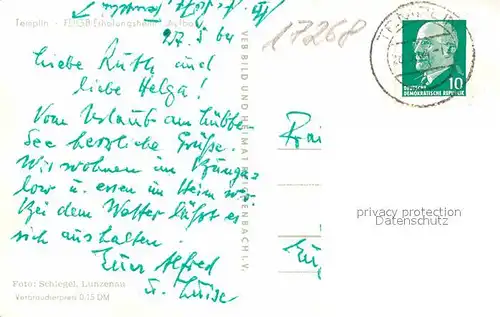 Templin - FDGB Erholungsheim
27. 5. 64
Liebe Ruth und
liebe Helga!
Vom Urlaub am Lübbe
See herzliche Grüße.
Wir wohnen im Bunga-
low u. essen im Heim
Bei dem Wetter läßt es
sich aushalten.
Eure Alfred
u. Luise
Foto: Schlegel, Lunzenau
Verbraucherpreis 0,15 DM
VEB BILD UND HEIMAT REICHENBACH I. V.
17268
TEMPLIN
10
DEUTSCHE
DEMOKRATISCHE REPUBLIK
privacy protection
Datenschutz